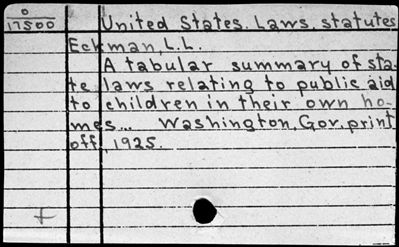 0
17500
United States. Laws, statutes
Eckman, L.L.
A tabular summary of sta-
te laws relating to public aid
to children in their own ho-
mes... Washington, Gov. print
off, 1925.